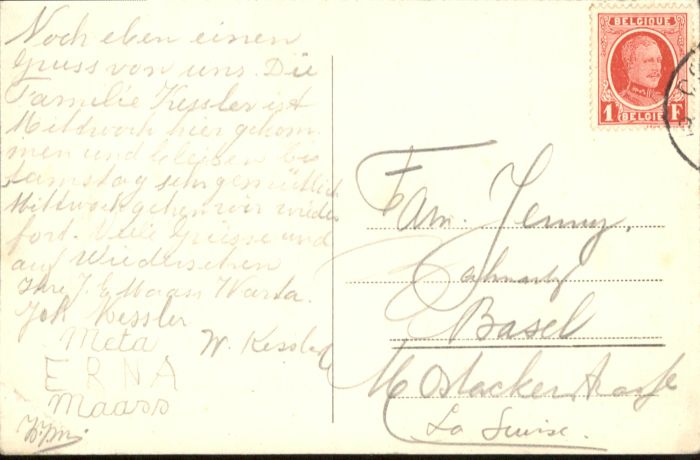 Noch eben einen
Gruss von uns. Die
Familie Kessler ist
Mittwoch hier gekom
men und bleiben bis
Samstag sehr gemütlich
Mittwoch gehen wir wieder
fort. Viele Grüsse und
auf Wiedersehen
Ihre J. E. Maass Warta.
Joh Kessler
Meta W. Kessler
ERNA
Maass
BELGIQUE
1 F
BELGIË
Fam. Jenny,
Basel
Mostackerstrasse
La Suisse.